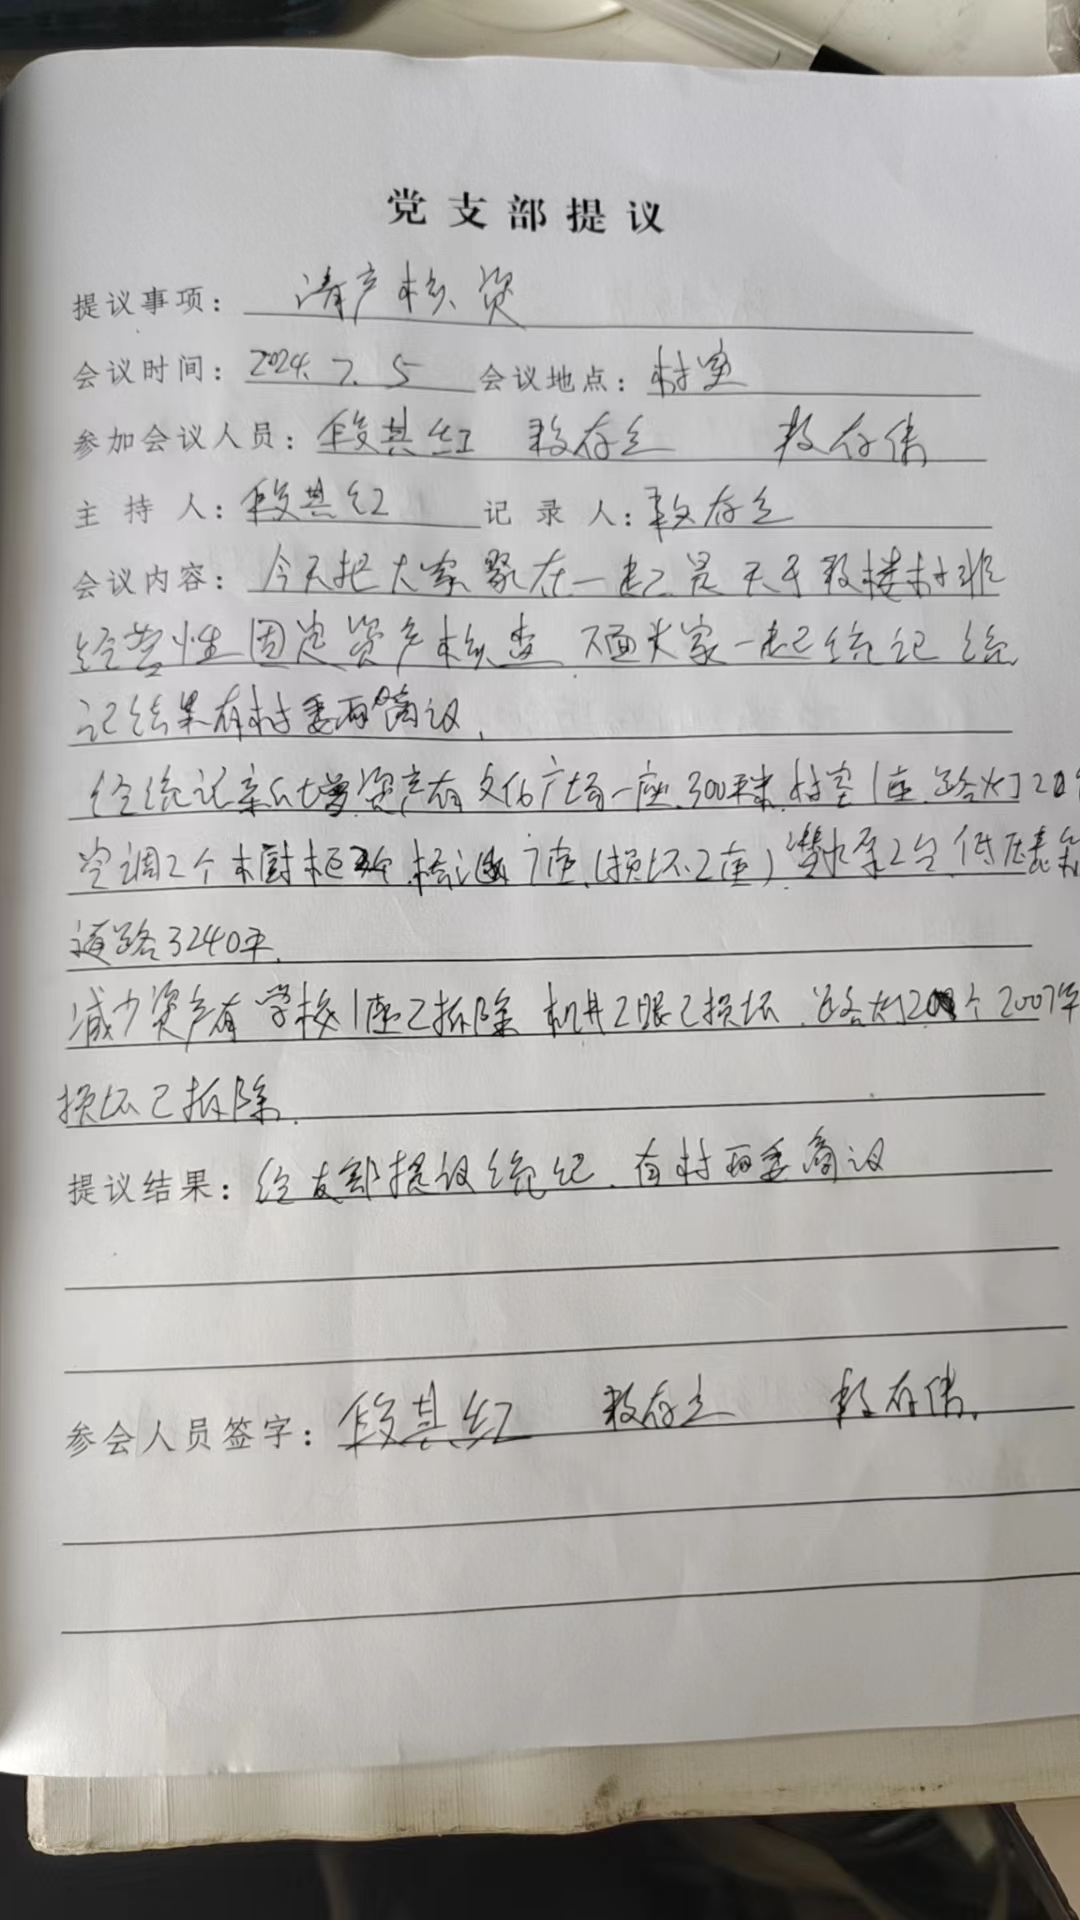 党支部提议
提议事项: 清产核资
会议时间: 2024.7.5 会议地点: 村室
参加会议人员: 段其红 段存立 段存伟
主持人: 段其红 记录人: 段存立
会议内容: 今天把大家聚在一起是关于段楼村非
经营性固定资产核查 下面大家一起统记 统
记结果有村委两商议.
经统记新增资产有文化广场一座.300平米.村室1座.路灯20
空调2个木厨柜 个.桥涵7座(损坏2座)潜水泵2台.低压
道路3240平.
减少资产有学校1座已拆除 机井2眼已损坏.路灯20个2007年
损坏已拆除.
提议结果: 经支部提议统纪.有村两委商议
参会人员签字: 段其红 段存立 段存伟.